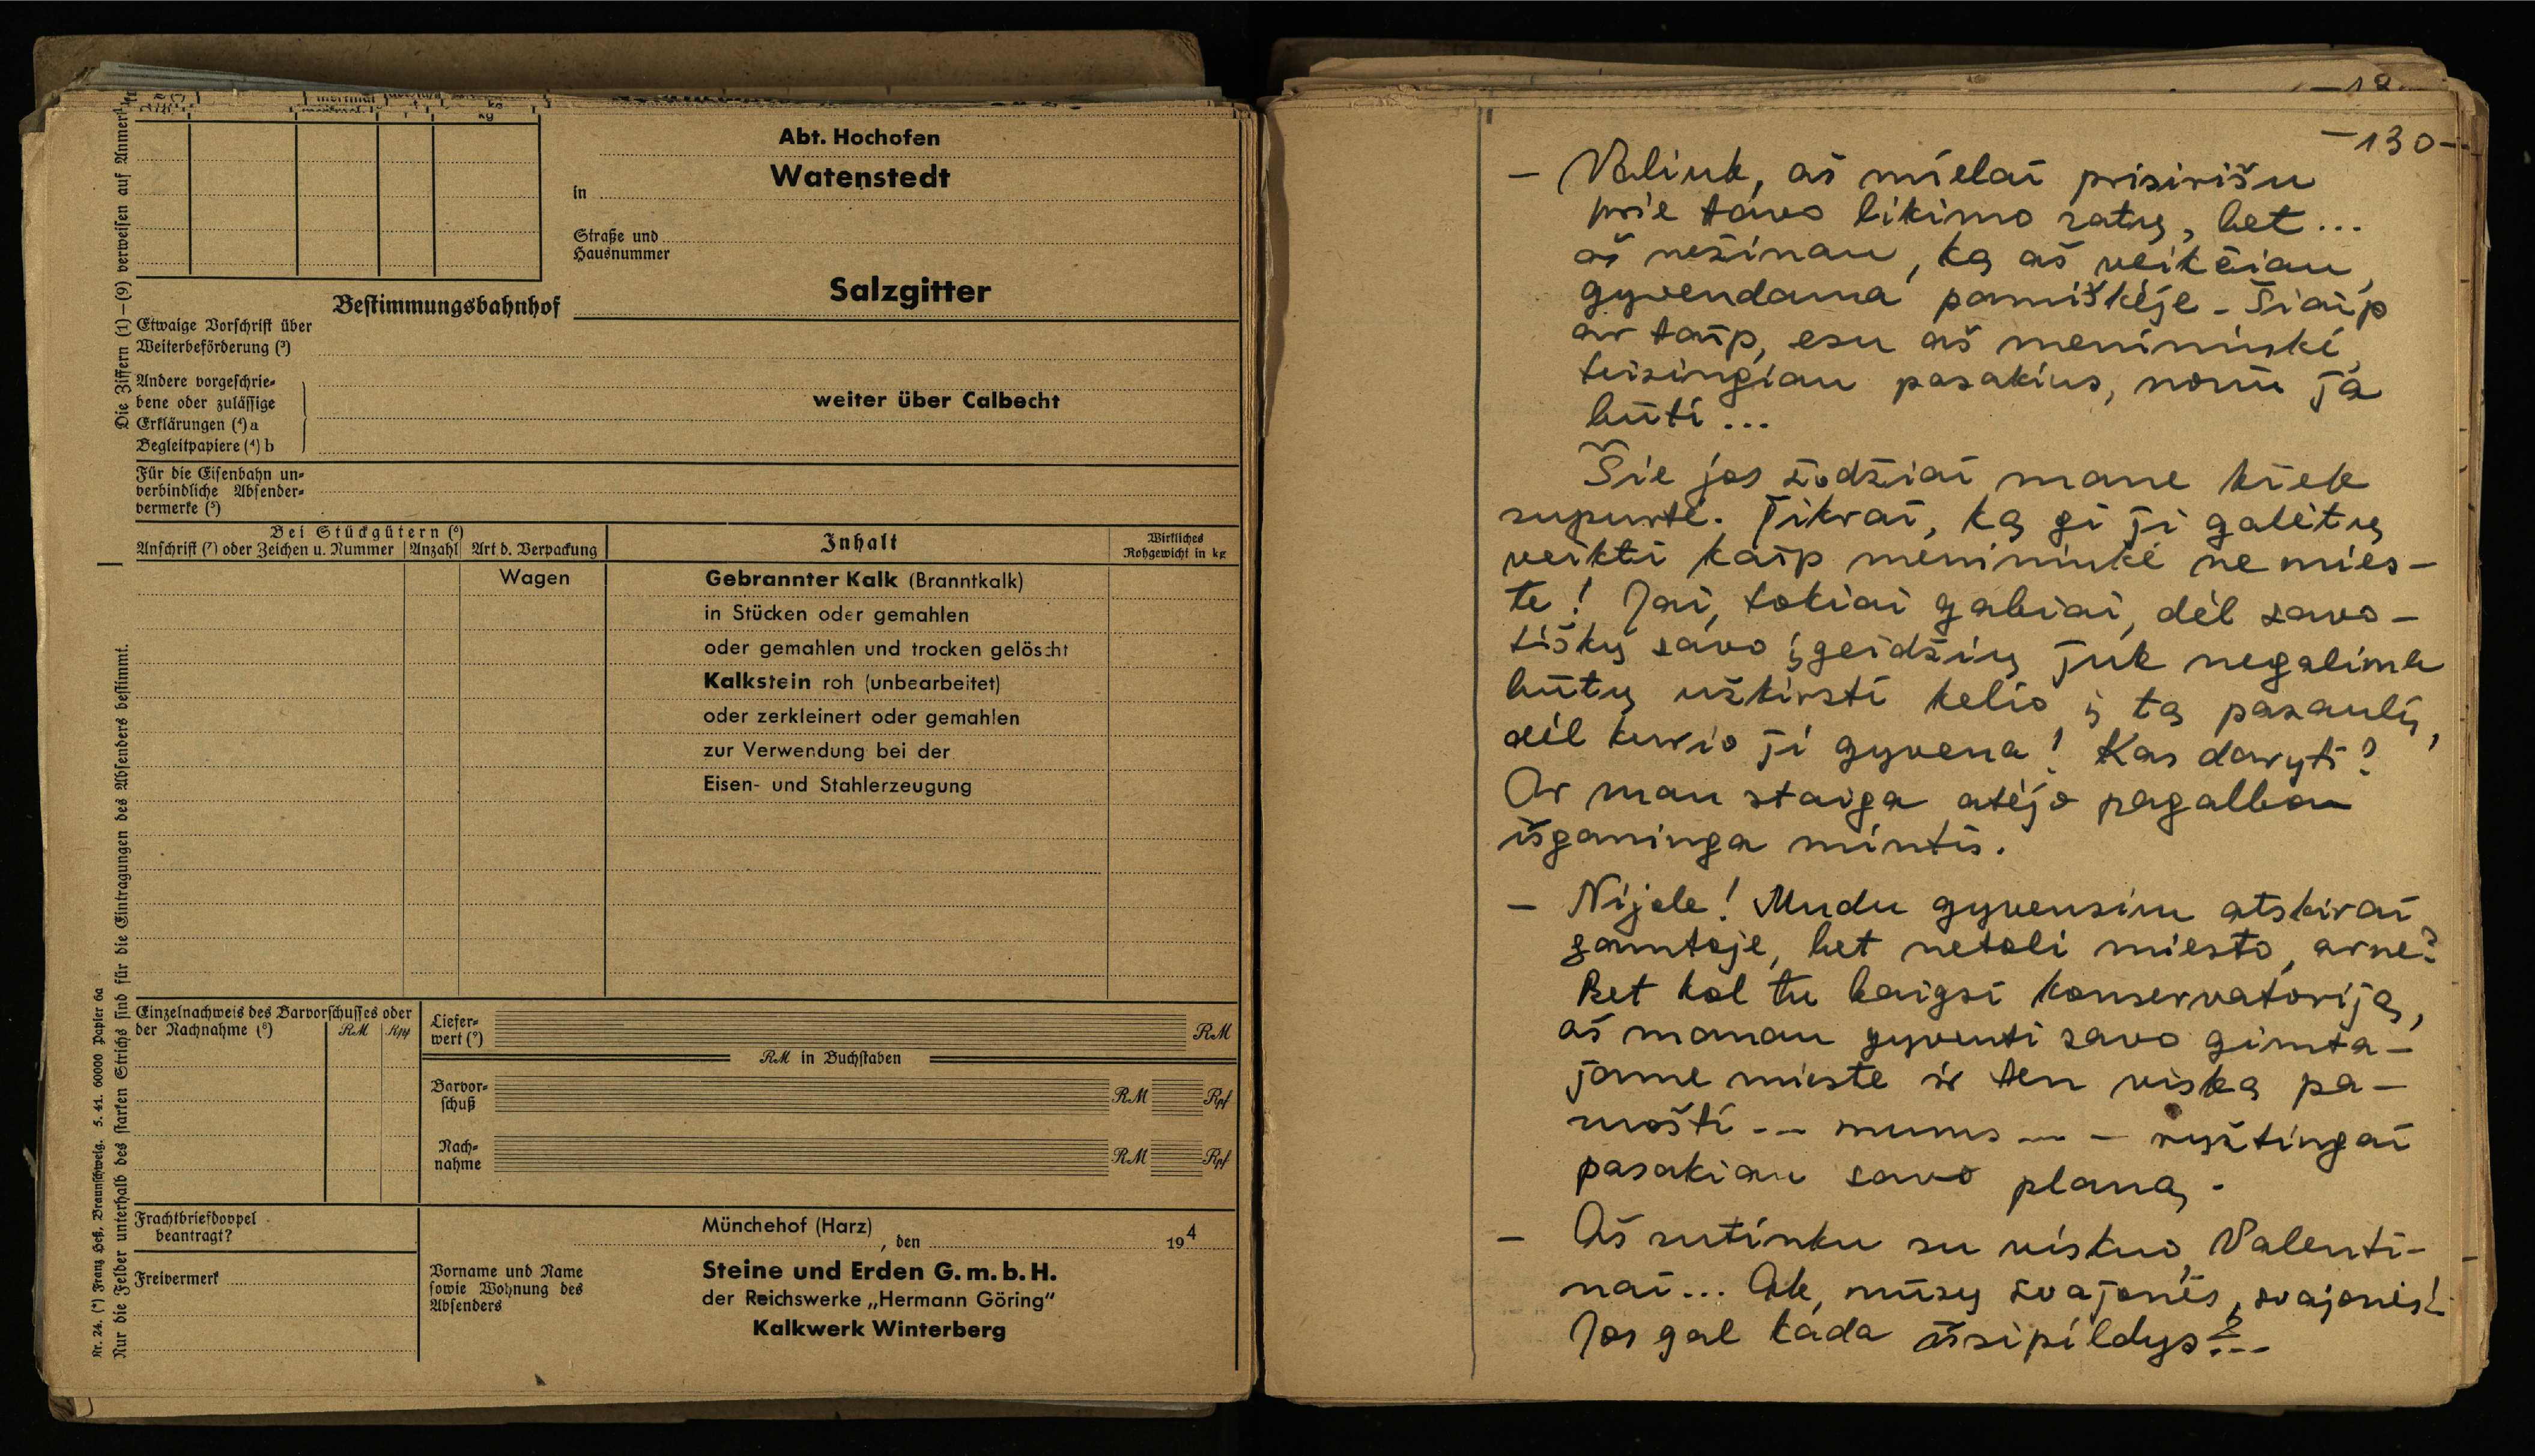 Abt. Hochofen
in Watenstedt
Straße und
Hausnummer
Salzgitter
Bestimmungsbahnhof
Etwaige Vorschrift über
Weiterbeförderung (³)
Andere vorgeschrie-
bene oder zulässige
Erklärungen (⁴) a
Begleitpapiere (⁴) b
weiter über Calbecht
Für die Eisenbahn un-
verbindliche Absender-
vermerke (⁵)
Bei Stückgütern (⁶)
Anschrift (⁷) oder Zeichen u. Nummer Anzahl Art d. Verpackung
Inhalt
Wirkliches
Rohgewicht in kg
Wagen Gebrannter Kalk (Branntkalk)
in Stücken oder gemahlen
oder gemahlen und trocken gelöscht
Kalkstein roh (unbearbeitet)
oder zerkleinert oder gemahlen
zur Verwendung bei der
Eisen- und Stahlerzeugung
Einzelnachweis des Barvorschusses oder
der Nachnahme (⁸) RM Rpf
Liefer-
wert (⁹) RM
RM in Buchstaben
Barvor-
schuß RM Rpf
Nach-
nahme RM Rpf
Frachtbriefdoppel
beantragt?
Freivermerk
Münchehof (Harz)
, den 194
Vorname und Name
sowie Wohnung des
Absenders
Steine und Erden G.m.b.H.
der Reichswerke „Hermann Göring"
Kalkwerk Winterberg
Die Ziffern (1)—(9) verweisen auf
Nur die Felder unterhalb des starken Strichs sind für die Eintragungen des Absenders bestimmt.
Nr. 24. (*) Franz Heß, Braunschweig. 5. 41. 60000 Papier 6a
-130-
- Valiuk, aš mielai prisirišu
prie tavo likimo ratų, bet...
aš nežinau, ką aš veikčiau,
gyvendama pamiškėje - Šiaip
ar taip, esu aš menininkė,
teisingiau pasakius, noriu ja
būti...
Šie jos žodžiai mane kiek
supurtė. Tikrai, ką gi ji galėtų
veikti kaip menininkė ne mies-
te! Jai, tokiai gabiai, dėl savo-
tiškų savo įgeidžių juk negalima
būtų užkirsti kelio į tą pasaulį,
dėl kurio ji gyvena! Kas daryti?
Ar man staiga atėjo pagalbon
išganinga mintis.
- Nijole! Mudu gyvensim atskirai
gamtoje, bet netoli miesto, arne?
Bet kol tu baigsi konservatoriją,
aš manau gyventi savo gimta-
jame mieste ir ten viską pa-
ruošti -- mums -- - ryžtingai
pasakiau savo planą.
- Aš sutinku su viskuo, Valenti-
nai... Ak, mūsų svajonės, svajonės!
Jos gal kada išsipildys?...